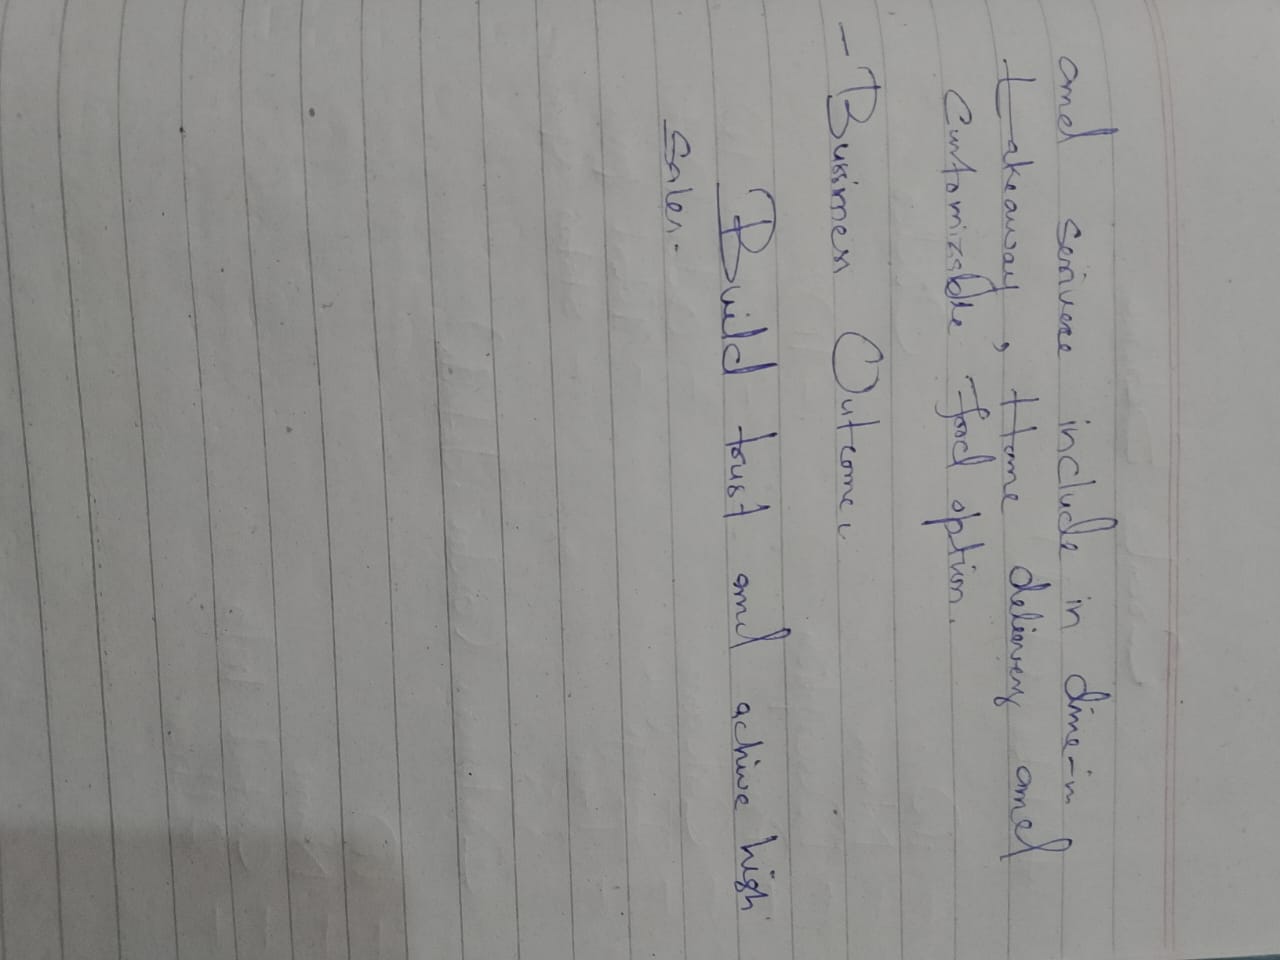 and serivece include in dine-in
takeaway, Home delievery and
Customizable food option.
- Business Outcomes
Build trust and achive high
Sales.